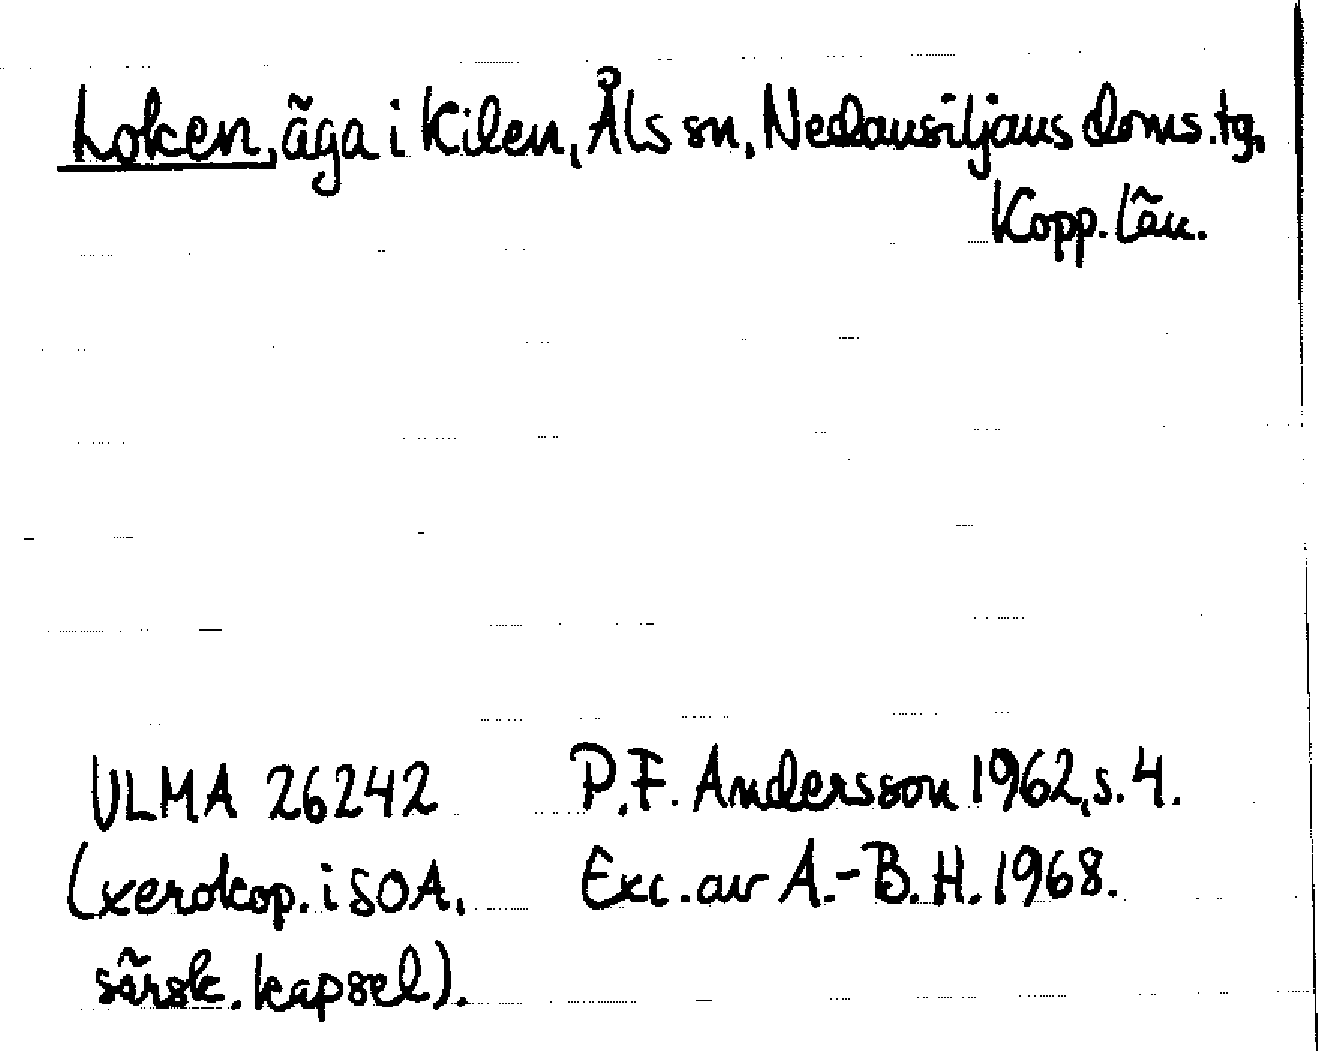 Loken, äga i Kilen, Åls sn, Nedansiljans doms.tg,
Kopp. län.
ULMA 26242 P.F. Andersson 1962, s. 4.
(xerokop. i SOA, Exc. av A.-B. H. 1968.
särsk. kapsel).